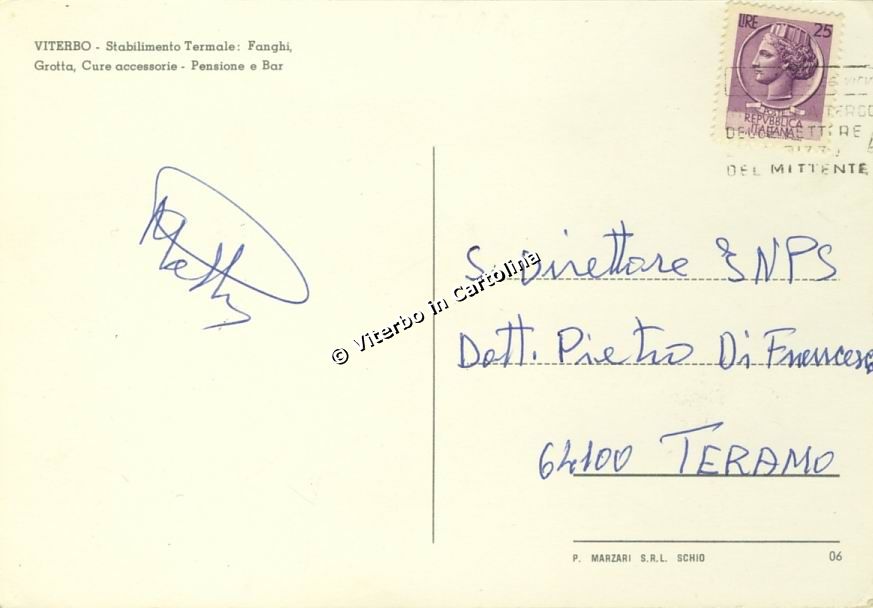 VITERBO - Stabilimento Termale: Fanghi,
Grotta, Cure accessorie - Pensione e Bar
LIRE 25
REPVBBLICA
ITALIANA
DEL MITTENTE
© Viterbo in Cartolina
S. Direttore INPS
Dott. Pietro Di Francesco
64100 TERAMO
P. MARZARI S.R.L. SCHIO 06